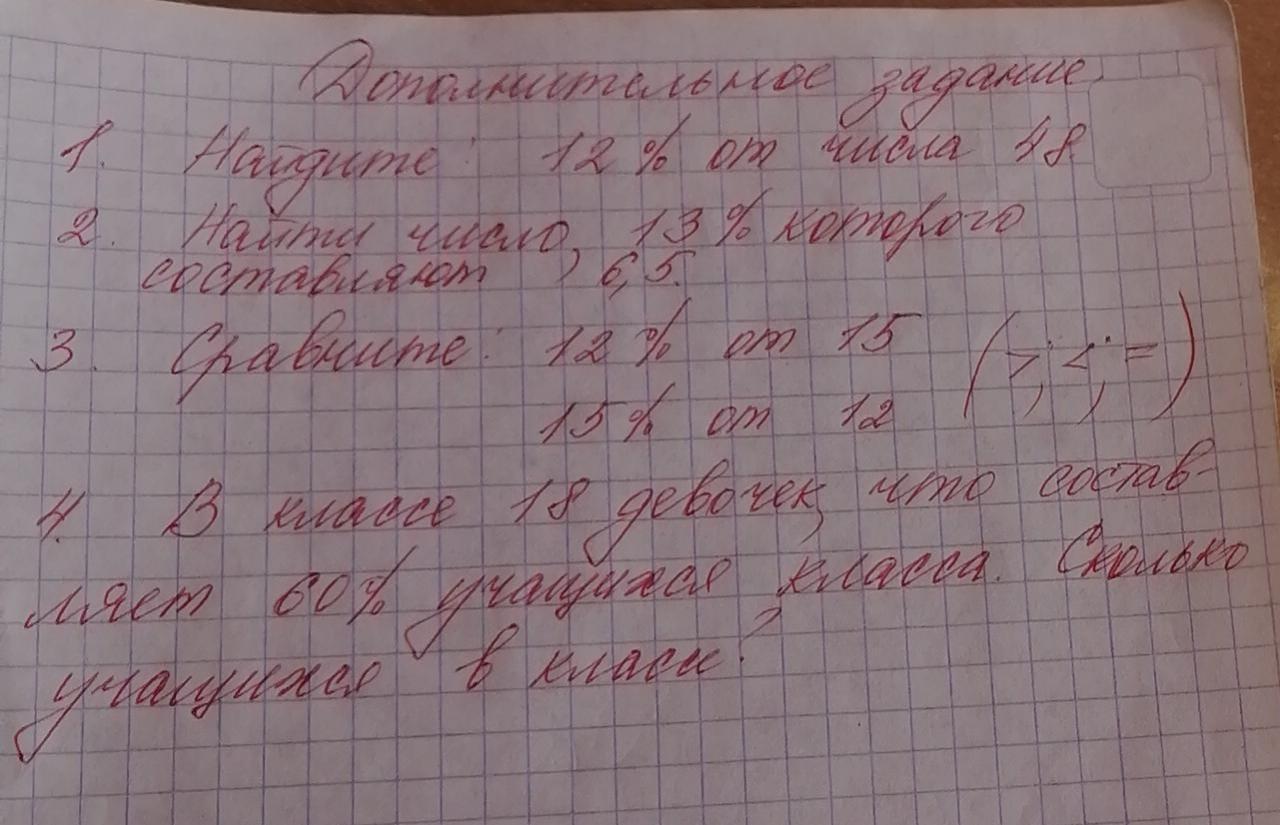 Дополнительное задание
1. Найдите: 12% от числа 48.
2. Найти число, 13% которого
составляют 6,5.
3. Сравните: 12% от 15 (>; <; =)
15% от 12
4. В классе 18 девочек, что состав-
ляет 60% учащихся класса. Сколько
учащихся в классе?